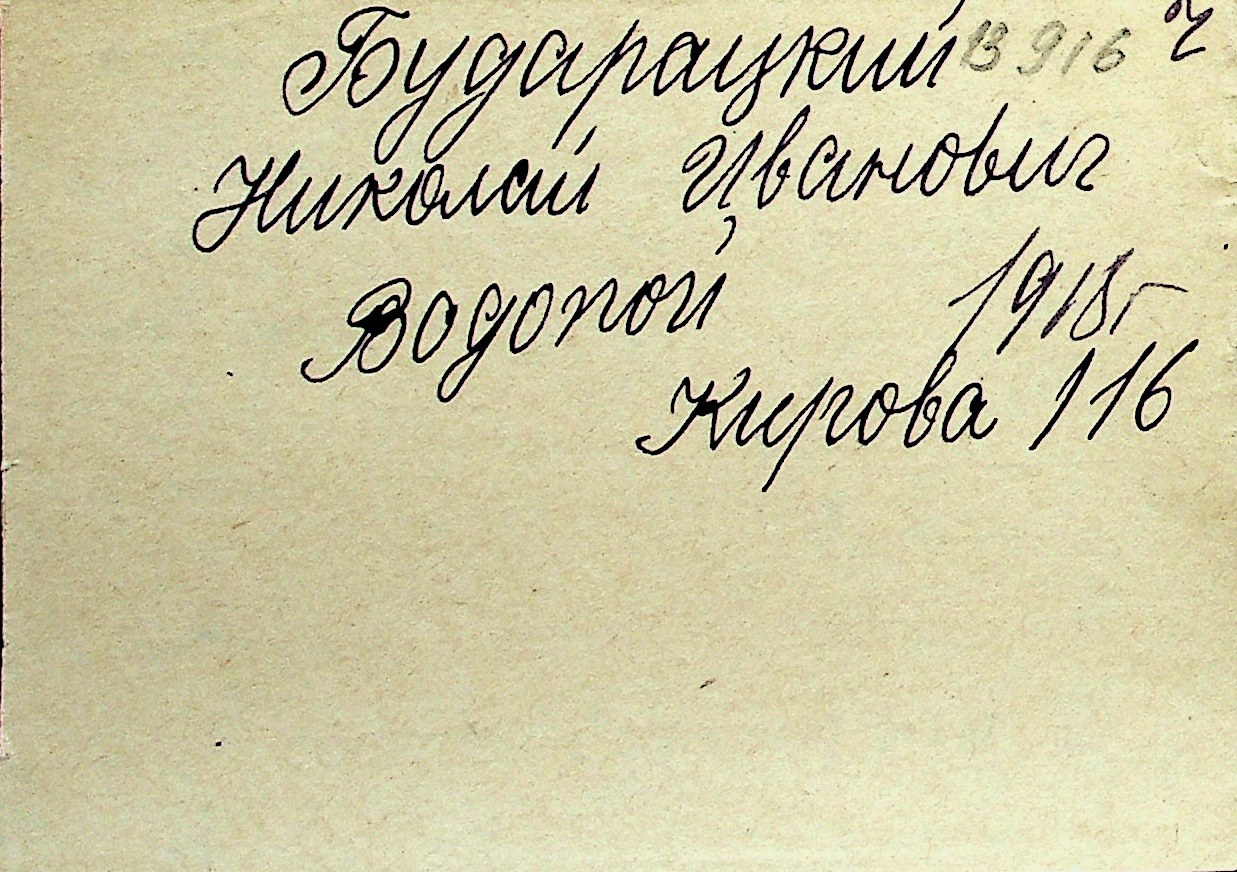 Бударацкий В 916
Николай Иванович
Водопой 1918г
Кирова 116